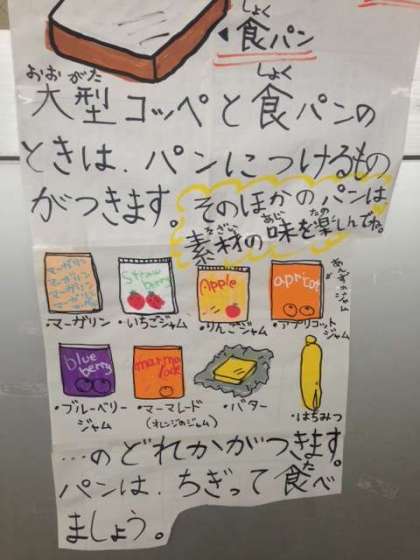 しょく
・食パン
おおがた しょく
大型コッペと食パンの
ときは、パンにつけるもの
がつきます。そのほかのパンは
そざい あじ たの
素材の味を楽しんでね。
マーガリン
マーガリン
マーガリン
マーガリン
Straw
berry
Apple
apricot
・マーガリン
・いちごジャム
・りんごジャム
・アプリコット
ジャム
blue
berry
marma
lade
・ブルーベリー
ジャム
・マーマレード
(オレンジのジャム)
・バター
・はちみつ
…のどれかがつきます。
た
パンは、ちぎって食べ
ましょう。